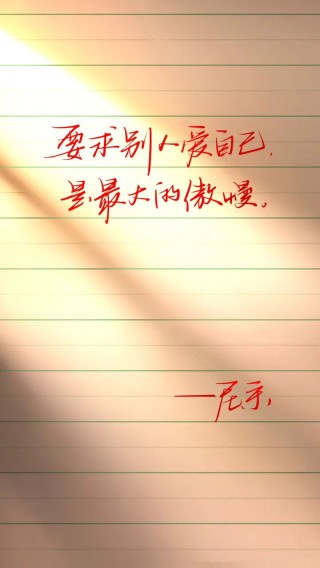 要求别人爱自己,
是最大的傲慢。
——尼采,